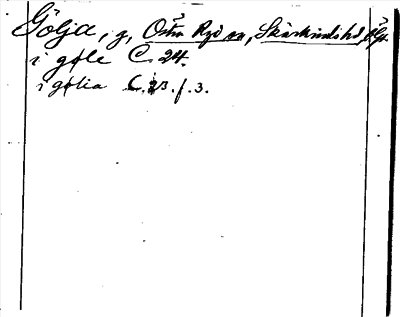 Gölja, g, Östra Ryd sn, Skärkinds hd, Ög.
i gøle C. 24.
i gølia C. 23. f. 3.